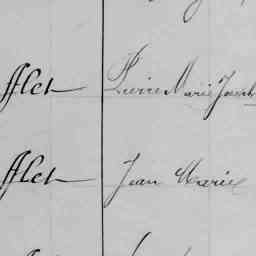 fflet Pierre Marie Joseph
fflet Jean Marie